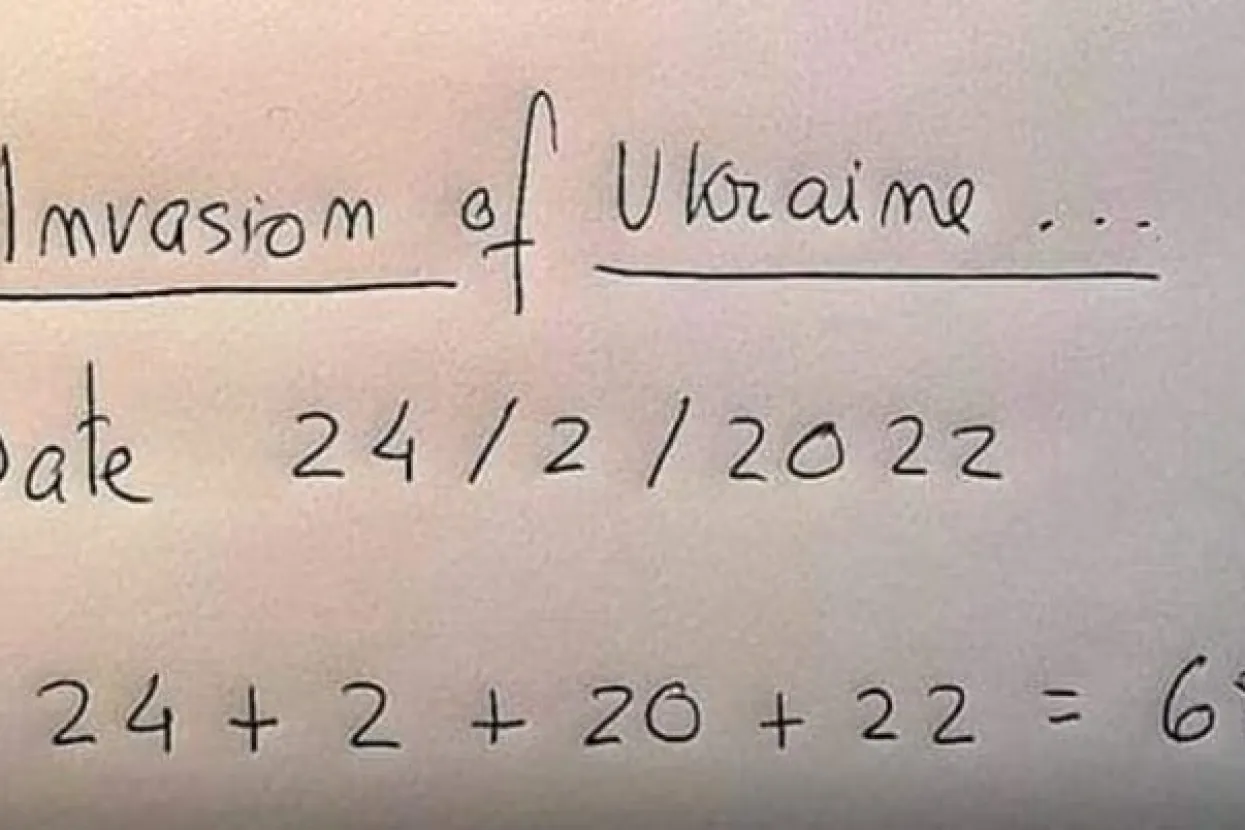 Invasion of Ukraine ...
Date 24/2/2022
24 + 2 + 20 + 22 = 6